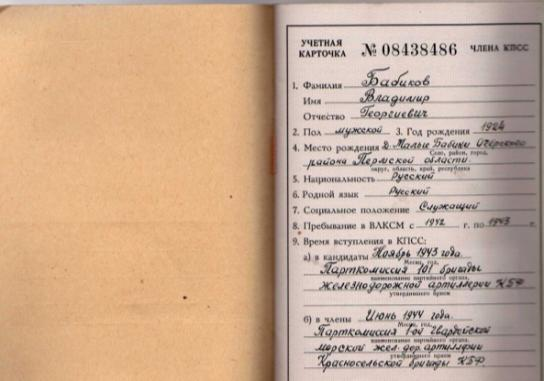 УЧЕТНАЯ КАРТОЧКА № 08438486 ЧЛЕНА КПСС
1. Фамилия Бабиков
Имя Владимир
Отчество Георгиевич
2. Пол мужской 3. Год рождения 1924
4. Место рождения д. Малые Бабики Очёрского
Село, район, город,
района Пермской области.
округ, область, край, республика
5. Национальность Русский
6. Родной язык Русский
7. Социальное положение Служащий
8. Пребывание в ВЛКСМ с 1942 г. по 1943 г.
9. Время вступления в КПСС:
а) в кандидаты Ноябрь 1943 года.
Месяц, год,
Парткомиссия 101 бригады
наименование партийного органа,
железнодорожной артиллерии КБФ
утвердившего прием
б) в члены Июнь 1944 года.
Месяц, год,
Парткомиссия 1-ой Гвардейской
наименование партийного органа,
морской жел. дор. артиллрии
утвердившего прием
Красносельской бригады КБФ.